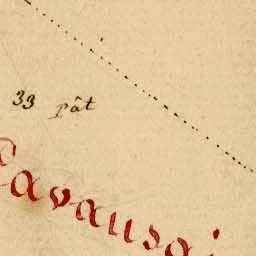 33 Pât
Cavansai